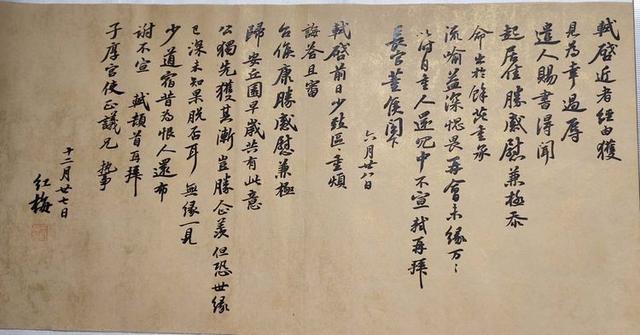 軾啓近者經由獲
見為幸過辱
遣人賜書得聞
起居佳勝感慰兼極忝
命出於餘芘重承
流喻益深愧畏再會未緣万〻
以時自重人還冗中不宣軾再拜
長官董侯閣下
六月廿八日
軾啓前日少致區〻重煩
誨答且審
台候康勝感慰兼極
歸安丘園早歲共有此意
公獨先獲其漸豈勝企羨但恐世緣
已深未知果脫否耳無緣一見
少道宿昔為恨人還布
謝不宣軾頓首再拜
子厚宮使正議兄執事
十二月廿七日
紅梅